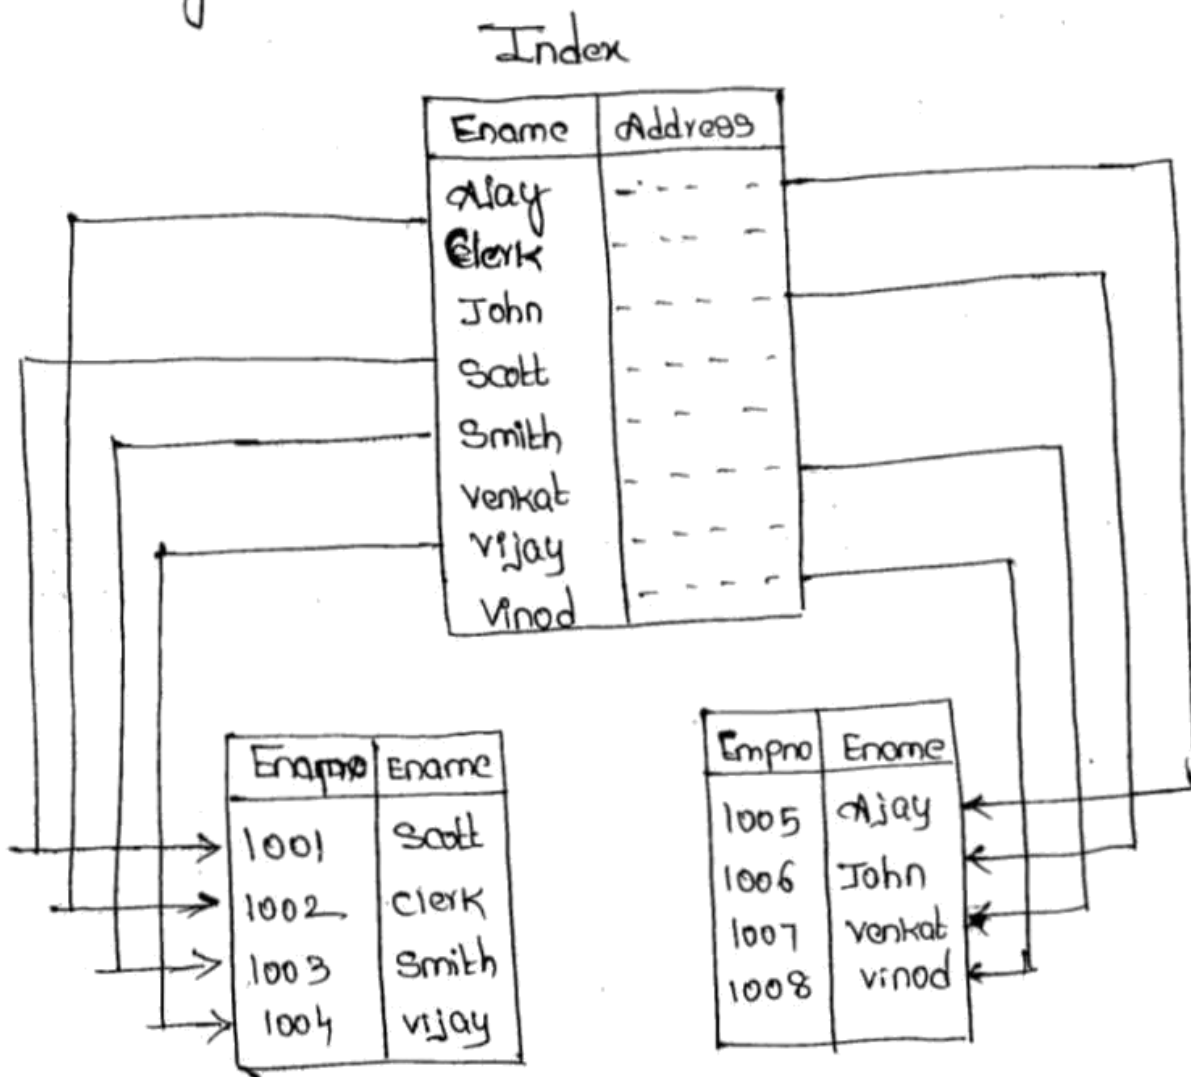 Index
Ename Address
Ajay
Clerk
John
Scott
Smith
Venkat
Vijay
Vinod
Ename
1001 Scott
1002 Clerk
1003 Smith
1004 Vijay
Empno Ename
1005 Ajay
1006 John
1007 Venkat
1008 Vinod